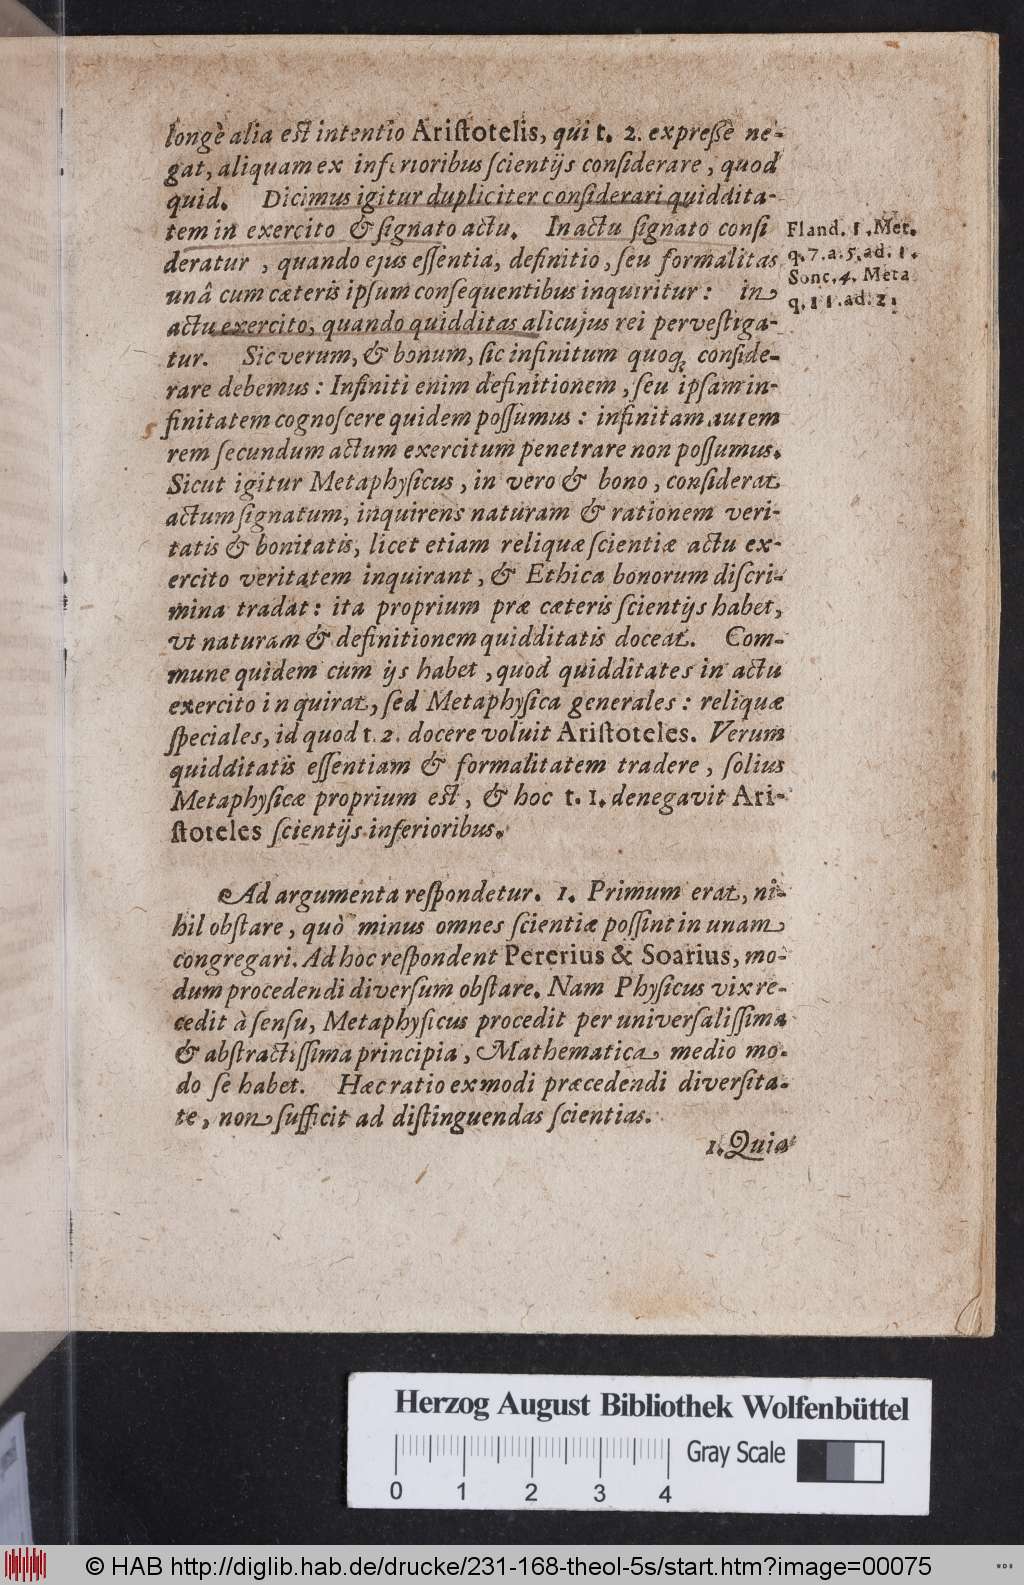 longè alia est intentio Aristotelis, qui t. 2. expreſſè ne-
gat, aliquam ex inferioribus ſcientijs conſiderare, quod
quid. Dicimus igitur dupliciter conſiderari quiddita-
tem in exercito & ſignato actu. In actu ſignato conſi
deratur, quando ejus eſſentia, definitio, ſeu formalitas
unâ cum cæteris ipſum conſequentibus inquiritur: in
actu exercito, quando quidditas alicujus rei perveſtiga-
tur. Sic verum, & bonum, ſic infinitum quoq; conſide-
rare debemus: Infiniti enim definitionem, ſeu ipſam in-
finitatem cognoſcere quidem poſſumus: infinitam autem
rem ſecundum actum exercitum penetrare non poſſumus.
Sicut igitur Metaphyſicus, in vero & bono, conſiderat
actum ſignatum, inquirens naturam & rationem veri-
tatis & bonitatis, licet etiam reliquæ ſcientiæ actu ex-
ercito veritatem inquirant, & Ethica bonorum diſcri-
mina tradat: ita proprium præ cæteris ſcientijs habet,
vt naturam & definitionem quidditatis doceat. Com-
mune quidem cum ijs habet, quod quidditates in actu
exercito inquirat, ſed Metaphyſica generales: reliquæ
ſpeciales, id quod t. 2. docere voluit Ariſtoteles. Verum
quidditatis eſſentiam & formalitatem tradere, ſolius
Metaphyſicæ proprium est, & hoc t. 1. denegavit Ari-
ſtoteles ſcientijs inferioribus.
Fland. 1. Met.
q. 7. a. 5. ad. 1.
Sonc. 4. Meta
q. 11. ad. 2.
Ad argumenta reſpondetur. 1. Primum erat, ni-
hil obſtare, quò minus omnes ſcientiæ poſſint in unam
congregari. Ad hoc reſpondent Pererius & Soarius, mo-
dum procedendi diverſum obſtare. Nam Phyſicus vix re-
cedit à ſenſu, Metaphyſicus procedit per univerſaliſſima
& abſtractiſſima principia, Mathematica medio mo-
do ſe habet. Hæc ratio ex modi præcedendi diverſita-
te, non ſufficit ad diſtinguendas ſcientias.
1. Quia
Herzog August Bibliothek Wolfenbüttel
Gray Scale
0 1 2 3 4
© HAB http://diglib.hab.de/drucke/231-168-theol-5s/start.htm?image=00075